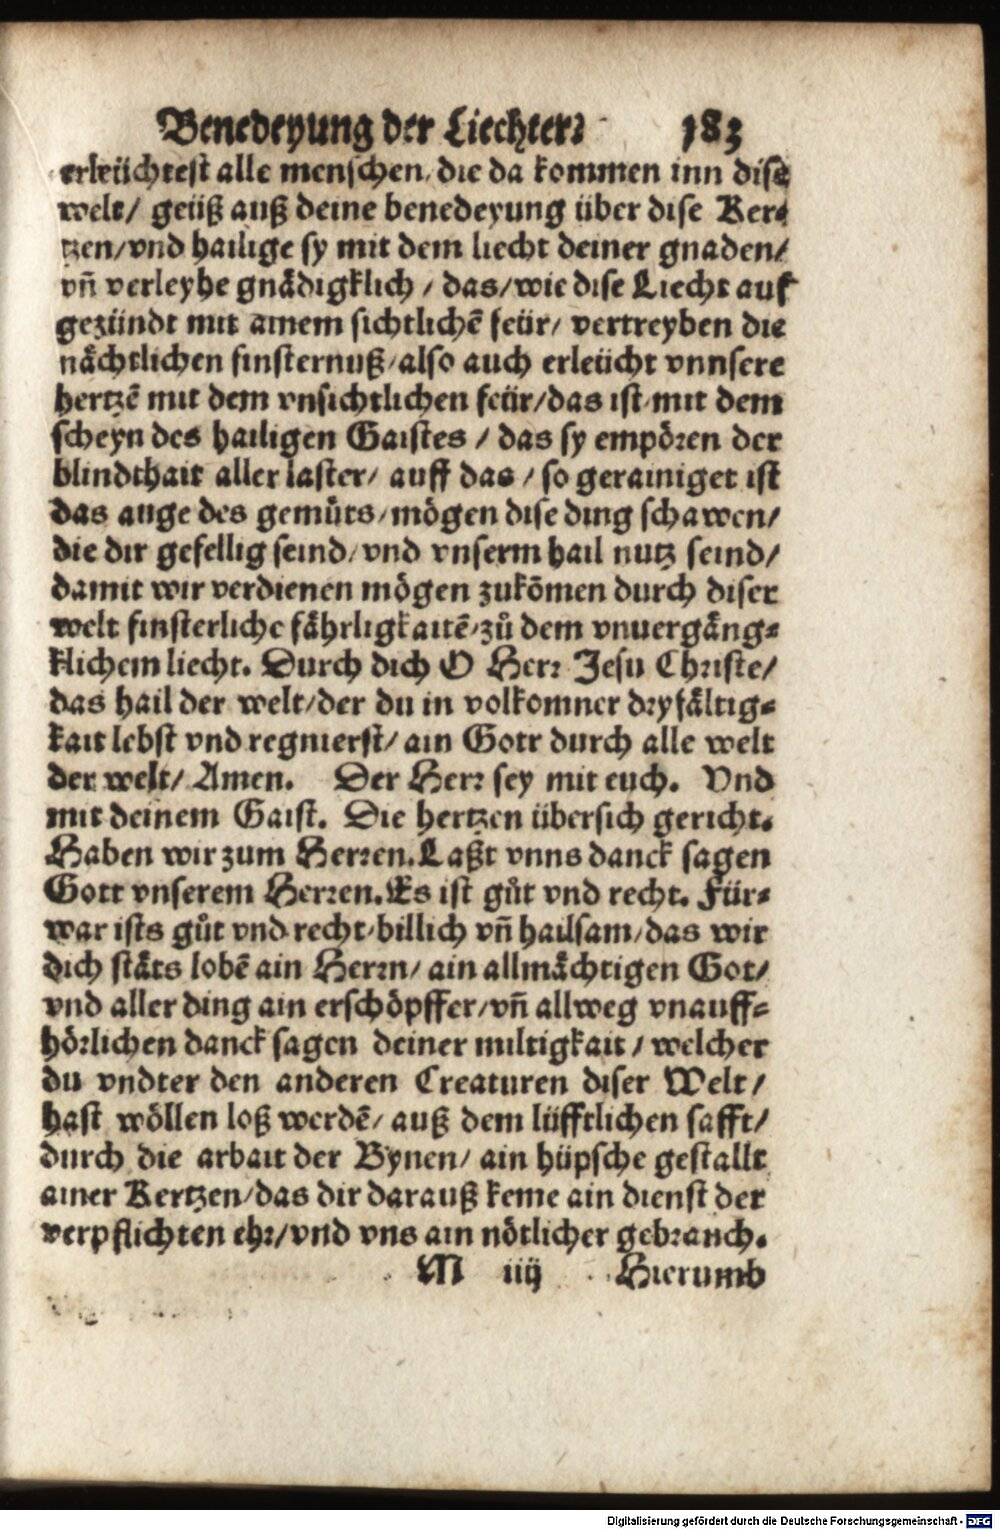 Benedeyung der Liechter. 183
erleüchtest alle menschen/ die da kommen inn dise
welt/ geüß auß deine benedeyung über dise Ker-
tzen/ vnd hailige sy mit dem liecht deiner gnaden/
vñ verleyhe gnådigklich / das/ wie dise Liecht auf
gezündt mit ainem sichtlichē feür/ vertreyben die
nåchtlichen finsternuß/ also auch erleücht vnnsere
hertzē mit dem vnsichtlichen feür/ das ist/ mit dem
scheyn des hailigen Gaistes / das sy empören der
blindthait aller laster/ auff das / so gerainiget ist
das auge des gemüts/ mögen dise ding schawen/
die dir gefellig seind/ vnd vnserm hail nutz seind/
damit wir verdienen mögen zukōmen durch diser
welt finsterliche fåhrligkaitē/ zů dem vnuergång-
klichem liecht. Durch dich O Herr Jesu Christe/
das hail der welt/ der du in volkomner dryfåltig-
kait lebst vnd regnierst/ ain Gott durch alle welt
der welt/ Amen. Der Herr sey mit euch. Vnd
mit deinem Gaist. Die hertzen übersich gericht.
Haben wir zum Herren. Laßt vnns danck sagen
Gott vnserem Herren. Es ist gůt vnd recht. Für-
war ists gůt vnd recht/ billich vñ hailsam/ das wir
dich ståts lobē ain Herrn/ ain allmåchtigen Got/
vnd aller ding ain erschöpffer/ vñ allweg vnauff-
hörlichen danck sagen deiner miltigkait / welcher
du vndter den anderen Creaturen diser Welt /
hast wöllen loß werdē/ auß dem lüfftlichen safft/
durch die arbait der Bynen/ ain hüpsche gestallt
ainer Kertzen/ das dir darauß keme ain dienst der
verpflichten ehr/ vnd vns ain nötlicher gebrauch.
M iiij Hierumb
Digitalisierung gefördert durch die Deutsche Forschungsgemeinschaft - DFG